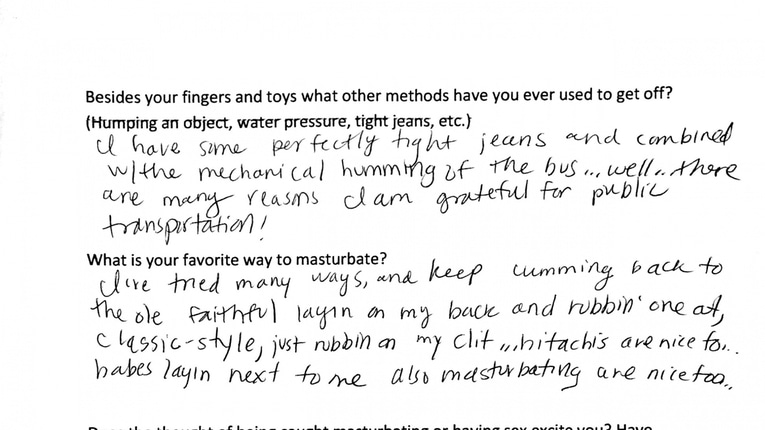 Besides your fingers and toys what other methods have you ever used to get off?
(Humping an object, water pressure, tight jeans, etc.)
I have some perfectly tight jeans and combined
w/the mechanical humming of the bus... well.. there
are many reasons I am grateful for public
transportation!
What is your favorite way to masturbate?
I've tried many ways, and keep cumming back to
the ole faithful layin on my back and rubbin' one out,
classic-style, just rubbin on my clit... hitachis are nice too..
babes layin next to me also masturbating are nice too..
Does the thought of being caught masturbating or having sex excite you? Have